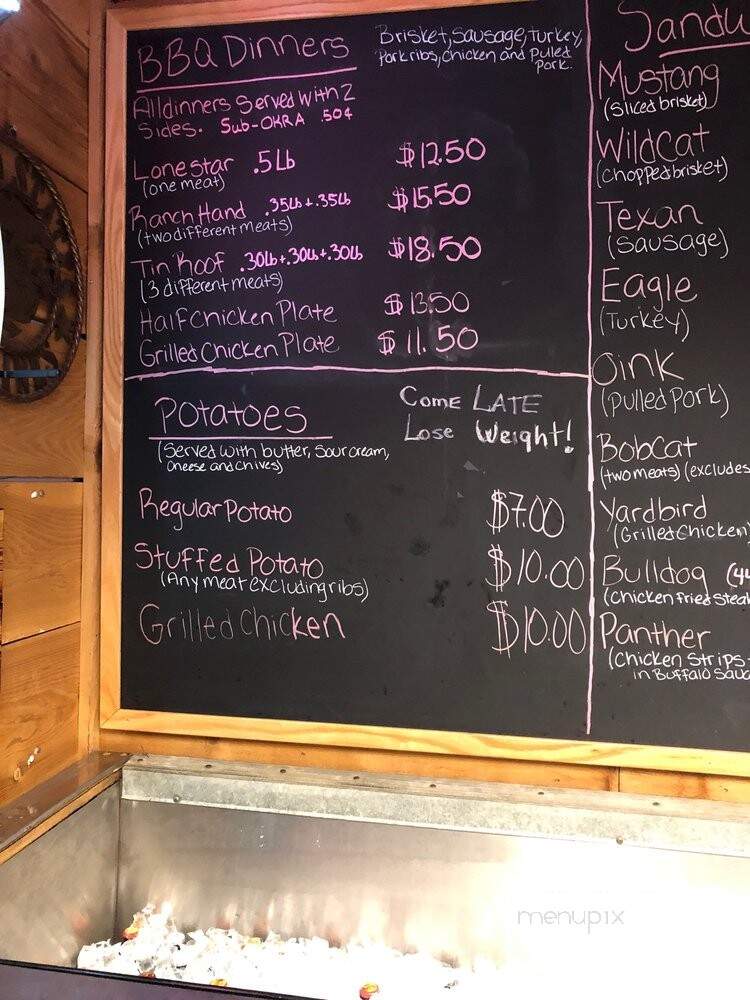 BBQ Dinners
Brisket, Sausage, Turkey,
Pork ribs, Chicken and Pulled
Pork.
All dinners Served with 2
Sides. Sub-OKRA .50¢
Lonestar .5Lb $12.50
(one meat)
Ranch Hand .35Lb+.35Lb $15.50
(two different meats)
Tin Roof .30Lb+.30Lb+.30Lb $18.50
(3 different meats)
Half Chicken Plate $13.50
Grilled Chicken Plate $11.50
Potatoes
(Served with butter, Sour cream,
Cheese and Chives)
Come LATE
Lose Weight!
Regular Potato $7.00
Stuffed Potato $10.00
(Any meat excluding ribs)
Grilled Chicken $10.00
Sandw
Mustang
(Sliced brisket)
Wildcat
(Chopped brisket)
Texan
(Sausage)
Eagle
(Turkey)
Oink
(Pulled Pork)
BobCat
(two meats) (excludes
Yardbird
(Grilled Chicken)
Bulldog (4
(Chicken Fried Steak
Panther
(Chicken Strips
in Buffalo Sauc
menupix